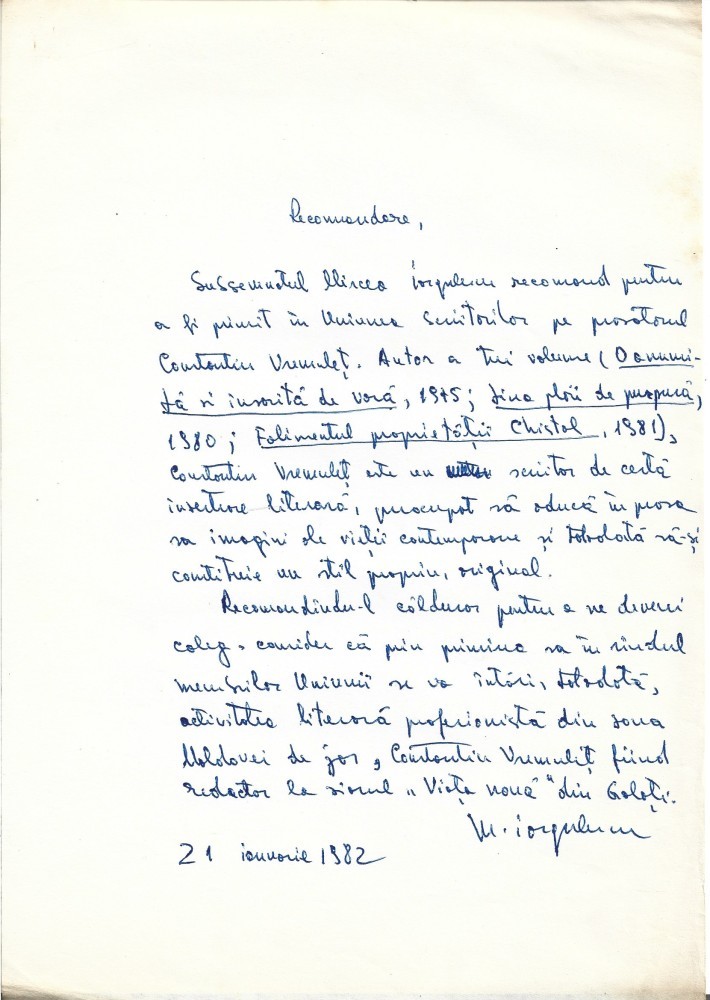 Recomandare,
Subsemnatul Mircea Iorgulescu recomand pentru
a fi primit în Uniunea Scriitorilor pe prozatorul
Constantin Vremuleț. Autor a trei volume (O anumi-
tă și însorită de vară, 1975; Ziua ploii de purpură,
1980; Falimentul proprietății Chistol, 1981),
Constantin Vremuleț este un scriitor de certă
inserțiune literară, preocupat să aducă în proza
sa imagini ale vieții contemporane și totodată să-și
constituie un stil propriu, original.
Recomandîndu-l călduros pentru a ne deveni
coleg, consider că prin primirea sa în rîndul
membrilor Uniunii se va întări, totodată,
activitatea literară profesionistă din zona
Moldovei de jos, Constantin Vremuleț fiind
redactor la ziarul „Viața nouă" din Galați.
M. Iorgulescu
21 ianuarie 1982